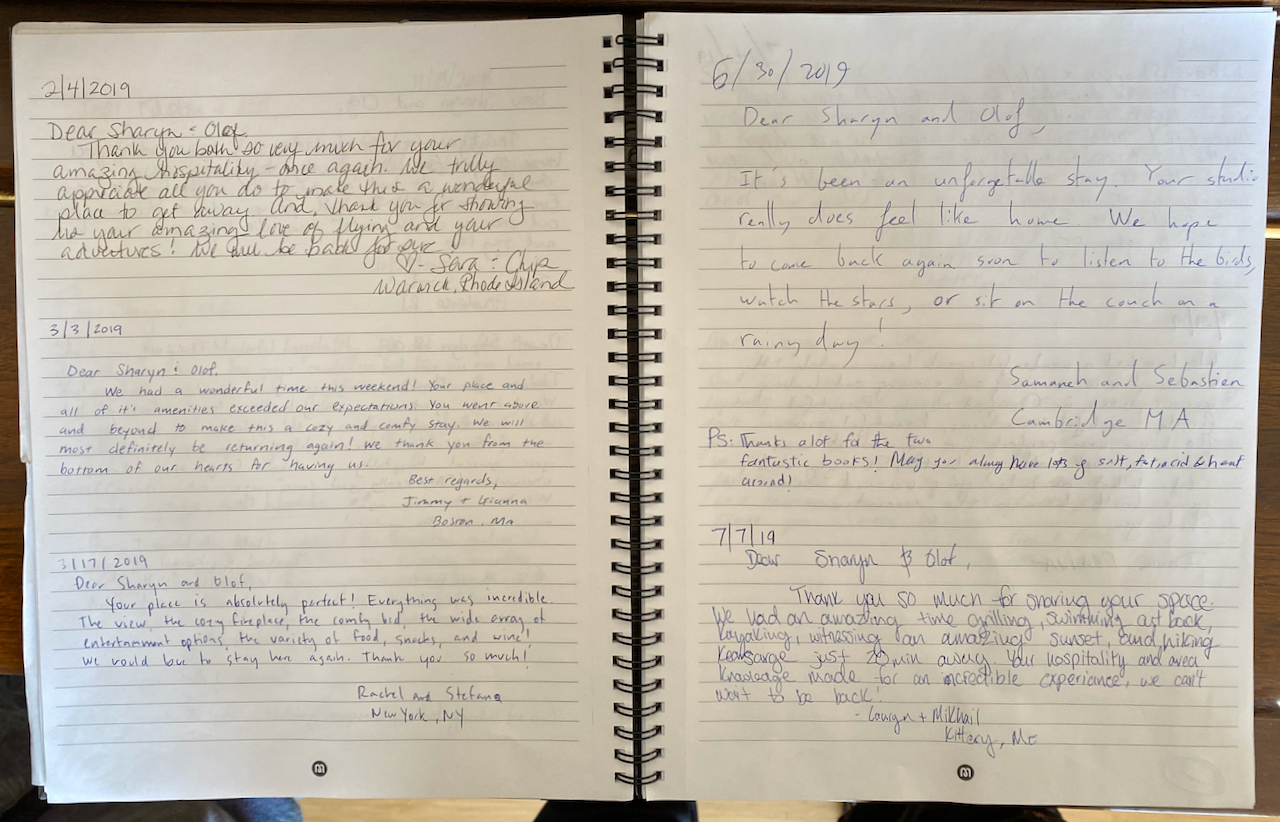 2/4/2019
Dear Sharyn & Olof,
Thank you both so very much for your
amazing hospitality - once again. We truly
appreciate all you do to make this a wonderful
place to get away and, thank you for showing
us your amazing love of flying and your
adventures! We will be back for sure
♡ - Sara & Chip
Warwick, Rhode Island
3/3/2019
Dear Sharyn & Olof,
We had a wonderful time this weekend! Your place and
all of it's amenities exceeded our expectations. You went above
and beyond to make this a cozy and comfy stay. We will
most definitely be returning again! We thank you from the
bottom of our hearts for having us.
Best regards,
Jimmy + Gianna
Boston, Ma
3/17/2019
Dear Sharyn and Olof,
Your place is absolutely perfect! Everything was incredible.
The view, the cozy fireplace, the comfy bed, the wide array of
entertainment options, the variety of food, snacks, and wine!
We would love to stay here again. Thank you so much!
Rachel and Stefano
New York, NY
6/30/2019
Dear Sharyn and Olof,
It's been an unforgetable stay. Your studio
really does feel like home. We hope
to come back again soon to listen to the birds,
watch the stars, or sit on the couch on a
rainy day!
Samaneh and Sebastien
Cambridge MA
PS: Thanks alot for the two
fantastic books! May you always have lots of salt, fat, acid & heat
around!
7/7/19
Dear Sharyn & Olof,
Thank you so much for sharing your space.
We had an amazing time grilling, swimming out back,
kayaking, witnessing an amazing sunset, and hiking
Kearsarge just 20 min away. Your hospitality and area
knowledge made for an incredible experiance, we can't
wait to be back!
- Lauryn + Mikhail
Kittery, ME